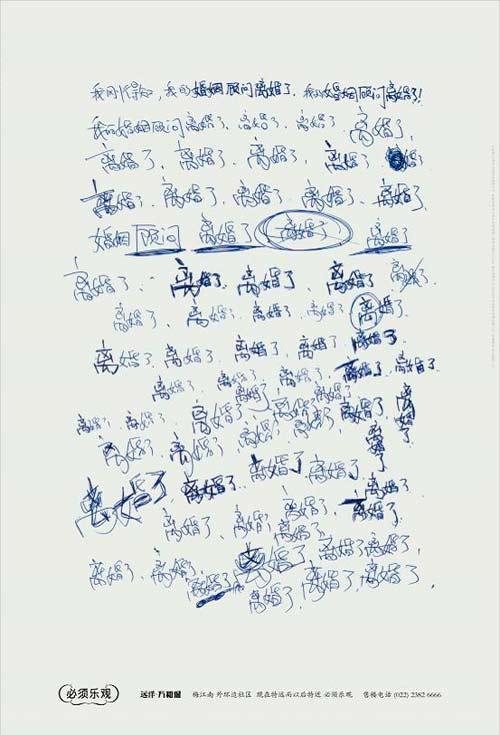 我刚得知，我的婚姻顾问离婚了，我的婚姻顾问离婚了！
我的婚姻顾问离婚了、离婚了、离婚了、离婚了，
离婚了、离婚了、离婚了，离婚了 婚
离婚了、离婚了、离婚了、离婚了、离婚了
婚姻顾问 离婚了 离婚了 离婚了
离婚了、离婚了 离婚了、离婚了 离婚了
离婚了、离婚了、离婚了、离婚了 离婚了
离婚了、离婚了、离婚了、离婚了
离婚了、离婚了、离婚了、离婚了
离婚了、离婚了、离婚了
离婚了、离婚了、离婚了 离婚了 离婚了
离婚了、离婚了、离婚了、离婚了
离婚了 离婚了 离婚了 离婚了 离婚了
离婚了、离婚了、离婚了 离婚了
离婚了、离婚了、离婚了、离婚了、离婚了
离婚了、离婚了、离婚了、离婚了
必须乐观
远洋·万和城 梅江南 外环边社区 现在特远而以后特近 必须乐观 售楼电话 (022) 2382 6666